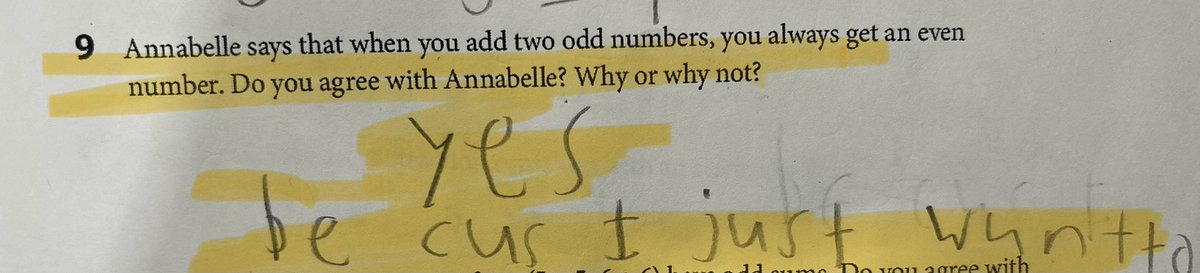 9 Annabelle says that when you add two odd numbers, you always get an even
number. Do you agree with Annabelle? Why or why not?
yes
be cus I just wyntto
odd sums. Do you agree with